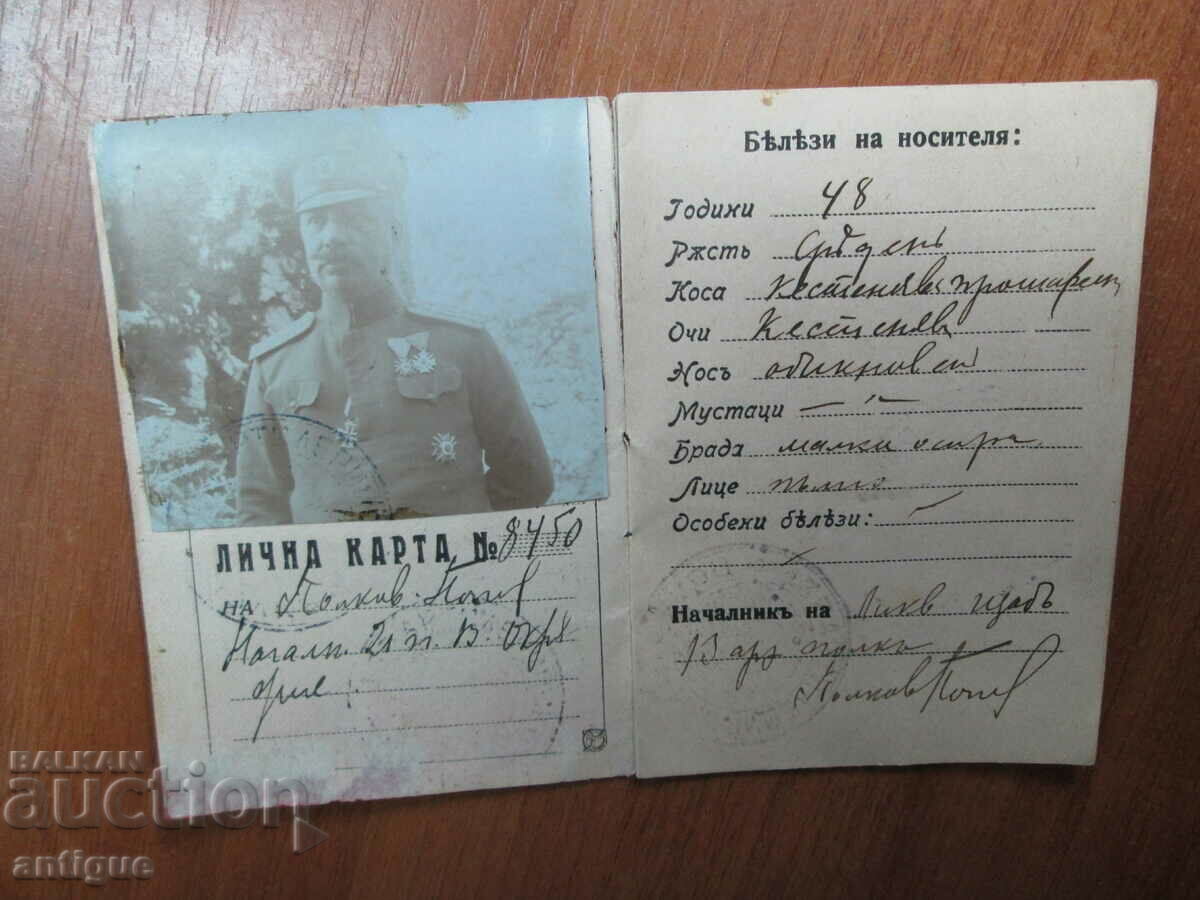 ЛИЧНА КАРТА № 8450
НА Полков.
Началн. 21 п. В.
Бѣлѣзи на носителя:
Години 48
Рѫсть Срѣденъ
Коса Кестенявъ прошарен
Очи Кестеняви
Носъ обикновен
Мустаци — " —
Брада малка остра
Лице пълно
Особени бѣлѣзи: —
Началникъ на Ликв щабъ
13 арт полкъ
Полков
BALKAN
auction
antique